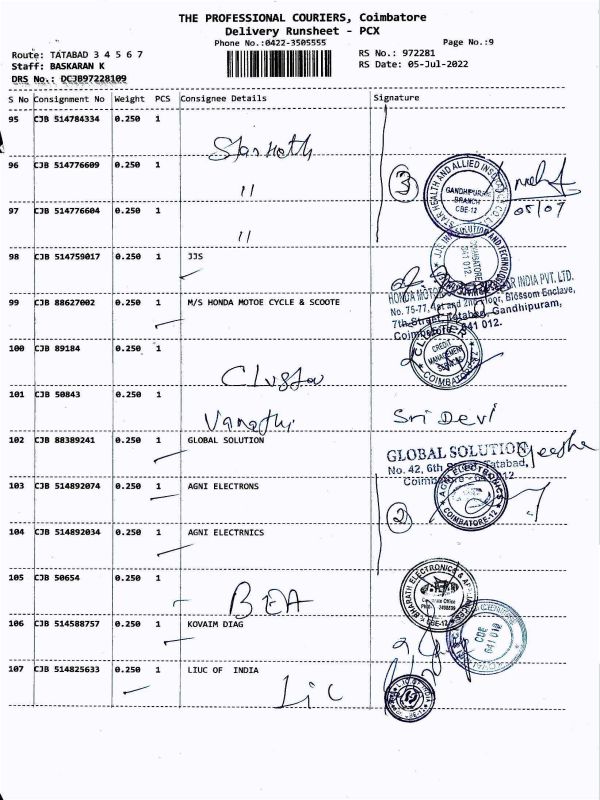 THE PROFESSIONAL COURIERS, Coimbatore
Delivery Runsheet - PCX
Phone No.:0422-3505555
Page No.:9
Route: TATABAD 3 4 5 6 7
RS No.: 972281
Staff: BASKARAN K
RS Date: 05-Jul-2022
DRS No.: DCJB97228109
S No Consignment No Weight PCS Consignee Details Signature
95 CJB 514784334 0.250 1
Starhelth
96 CJB 514776609 0.250 1
"
3
STAR HEALTH AND ALLIED INS CO LTD
GANDHIPURAM
BRANCH
CBE-12
05/07
97 CJB 514776604 0.250 1
"
98 CJB 514759017 0.250 1 JJS
COIMBATORE
641 012.
99 CJB 88627002 0.250 1 M/S HONDA MOTOE CYCLE & SCOOTE
HONDA INDIA PVT. LTD.
No. 75-77, 1st and 2nd Floor, Blossom Enclave,
7th Street, Tatabad, Gandhipuram,
Coimbatore 641 012.
100 CJB 89184 0.250 1
CLUSTER
CREDIT
MANAGEMENT
COIMBATORE
101 CJB 50843 0.250 1
Vanathi Sri Devi
102 CJB 88389241 0.250 1 GLOBAL SOLUTION
GLOBAL SOLUTION
No. 42, 6th Street, Tatabad,
Coimbatore - 641 012
103 CJB 514892074 0.250 1 AGNI ELECTRONS
AGNI ELECTRONICS
COIMBATORE-12
2
104 CJB 514892034 0.250 1 AGNI ELECTRNICS
105 CJB 50654 0.250 1
BEA
BHARATH ELECTRONICS & APPLIANCES
CBE-12
106 CJB 514588757 0.250 1 KOVAIM DIAG
CBE
641 012
107 CJB 514825633 0.250 1 LIUC OF INDIA
Lic